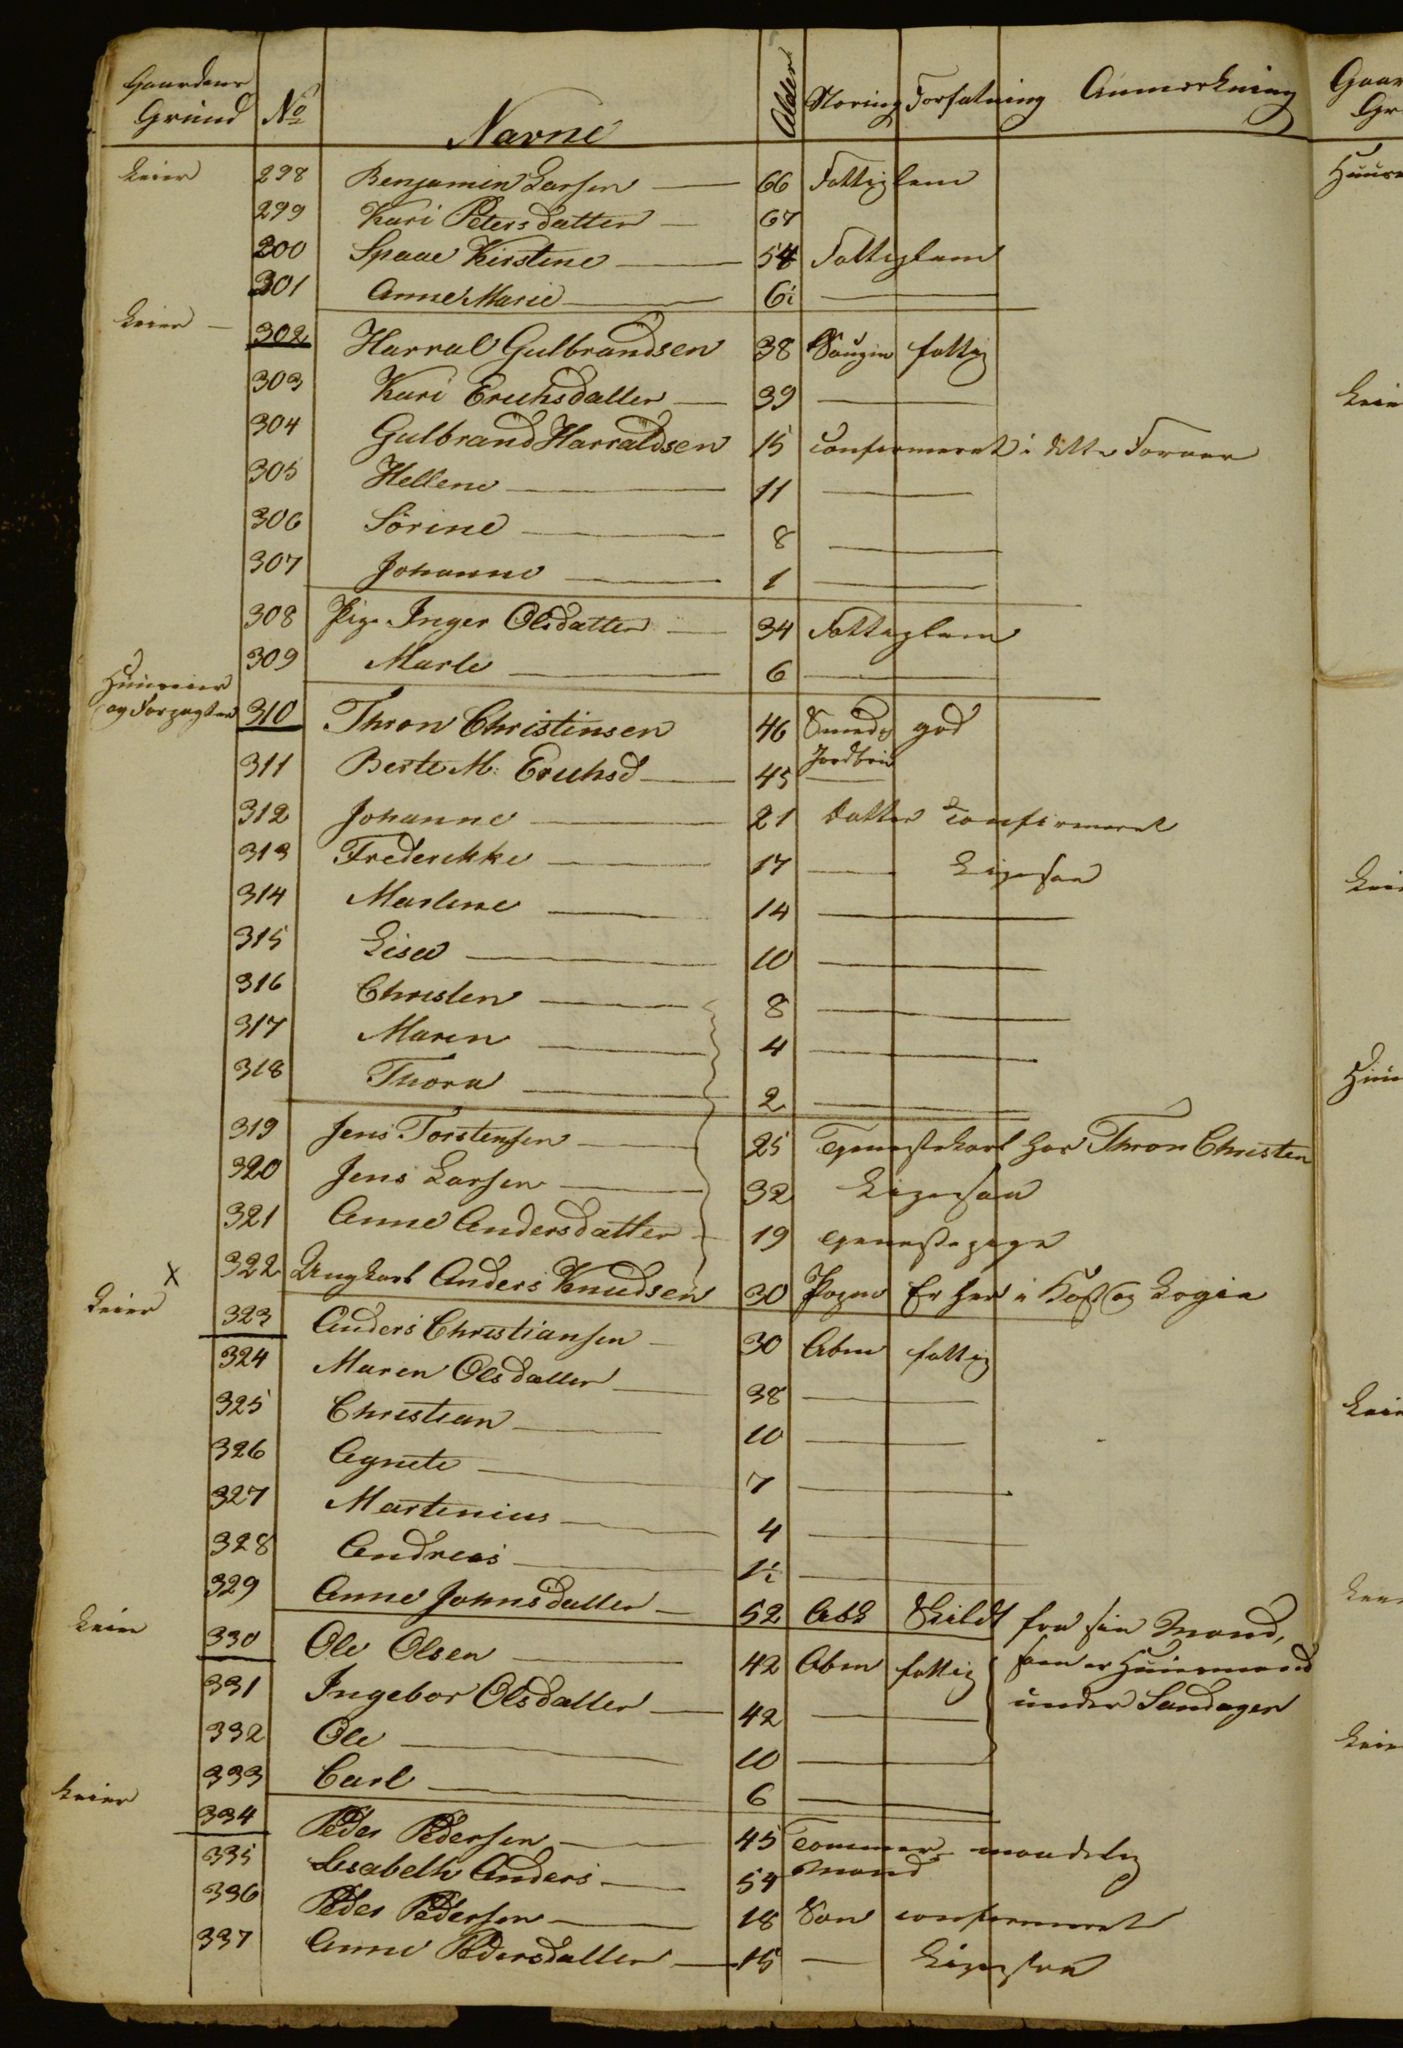 Gaardens Grund No Navne Alder Næring Forfatning Anmerkning
Leier 298 Benjamin Larsen 66 Fattiglem
299 Kari Petersdatter 67
200 Spaae Kirstine 54 Fattiglem
301 Anne Marie 6½
Leier 302 Harral Gulbrandsen 38 Saugm fattig
303 Kari Erichsdatter 39
304 Gulbrand Harraldsen 15 confermeret i dette Foraar
305 Hellene 11
306 Sörine 8
307 Johanne 1
308 Pige Inger Olsdatter 34 Fattiglem
309 Marte 6
Huuseier og Forpagter 310 Thron Christinsen 46 Smed og Jordbru god
311 Berte M: Erichsd 45
312 Johanne 21 Datter confirmeret
313 Frederikke 17 Ligesaa
314 Marlene 14
315 Lise 10
316 Christen 8
317 Maren 4
318 Thora 2
319 Jens Torstensen 25 Tjenestekarl hos Thron Christen
320 Jens Larsen 32 Ligesaa
321 Anne Andersdatter 19 Tjenestepige
X 322 Ungkarl Anders Knudsen 30 Er her i Kost og Logie
Leier 323 Anders Christiansen 30 Abm fattig
324 Maren Olsdatter 38
325 Christian 10
326 Agnete 7
327 Martinius 4
328 Andreas 1½
329 Anne Johnsdatter 52 Skildt fra sin Mand,
Leier 330 Ole Olsen 42 Abm fattig som er Huusmand
331 Ingebor Olsdatter 42 under Sandager
332 Ole 10
333 Carl 6
Leier 334 Peder Pedersen 45 Tømmermand maadelig
335 Lisabeth Anders 54
336 Peder Pedersen 18 Søn confermeret
337 Anne Pedersdatter 15 Ligesaa
Gaar
Gr
Huuse
Leie
Leie
Huu
Leie
Leie
Leie